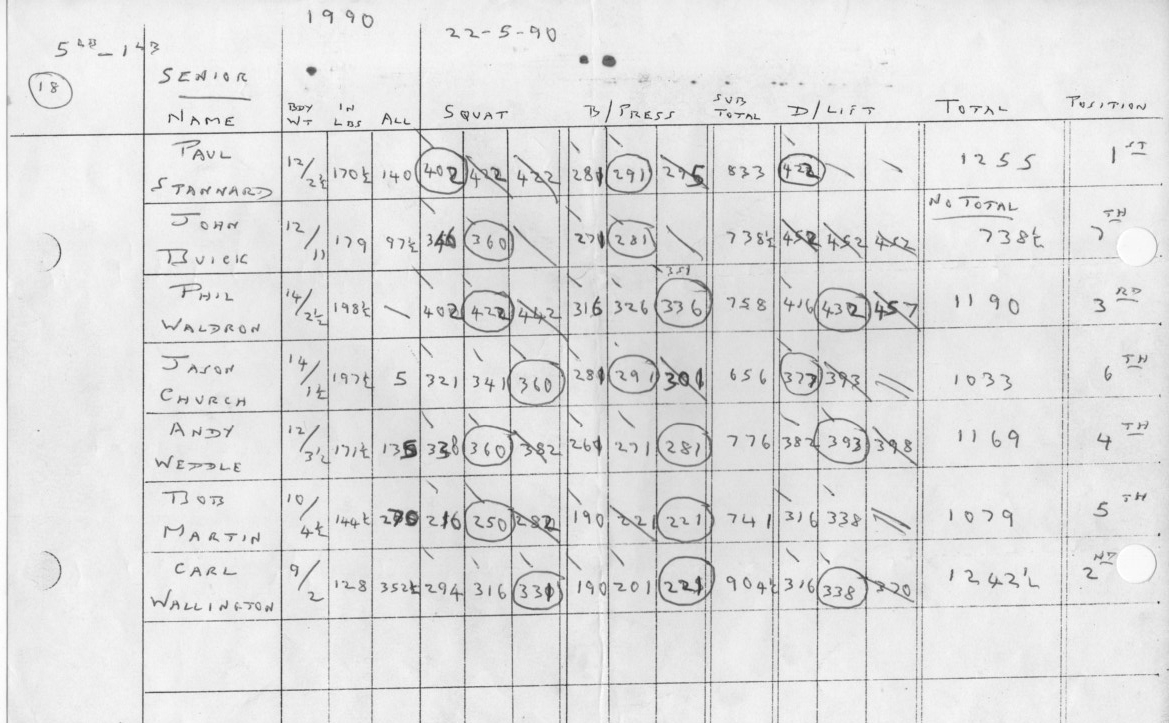 1990
22-5-90
5LB-1LB
18
SENIOR
NAME BDY WT IN LBS ALL SQUAT B/PRESS SUB TOTAL D/LIFT TOTAL POSITION
PAUL STANNARD 12/2½ 170½ 140 402 422 422 281 291 295 833 422 1255 1ST
NO TOTAL
JOHN BUICK 12/11 179 97½ 360 271 281 738½ 452 452 452 738½ 7TH
351
PHIL WALDRON 14/2½ 198½ — 402 422 442 316 326 336 758 416 432 457 1190 3RD
JASON CHURCH 14/1½ 197½ 5 321 341 360 281 291 301 656 377 393 1033 6TH
ANDY WEDDLE 12/3½ 171½ 135 338 360 382 261 271 281 776 382 393 398 1169 4TH
BOB MARTIN 10/4½ 144½ 270 216 250 282 190 221 221 741 316 338 1079 5TH
CARL WALLINGTON 9/2 128 352½ 294 316 331 190 201 221 904½ 316 338 370 1242½ 2ND